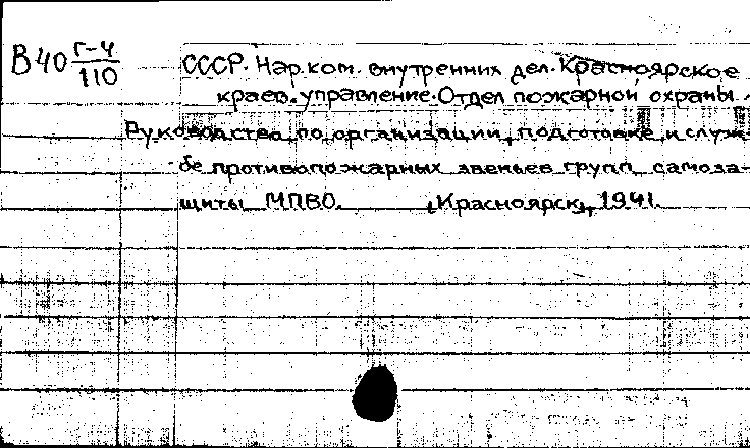 В40 Г-4/110
СССР. Нар.ком. внутренних дел. Красноярское
краев. управление. Отдел пожарной охраны.
Руководство по организации, подготовке и служ-
бе противопожарных звеньев групп самоза-
щиты МПВО. Красноярск, 1941.